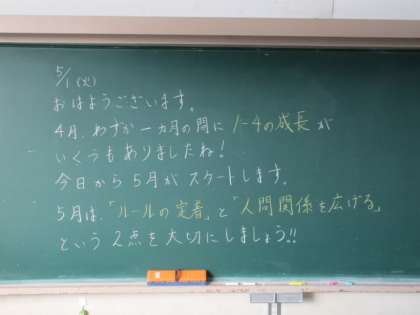 5/1(火)
おはようございます。
4月、わずか一ヵ月の間に1-4の成長が
いくつもありましたね!
今日から5月がスタートします。
5月は、「ルールの定着」と「人間関係を広げる」
という2点を大切にしましょう!!